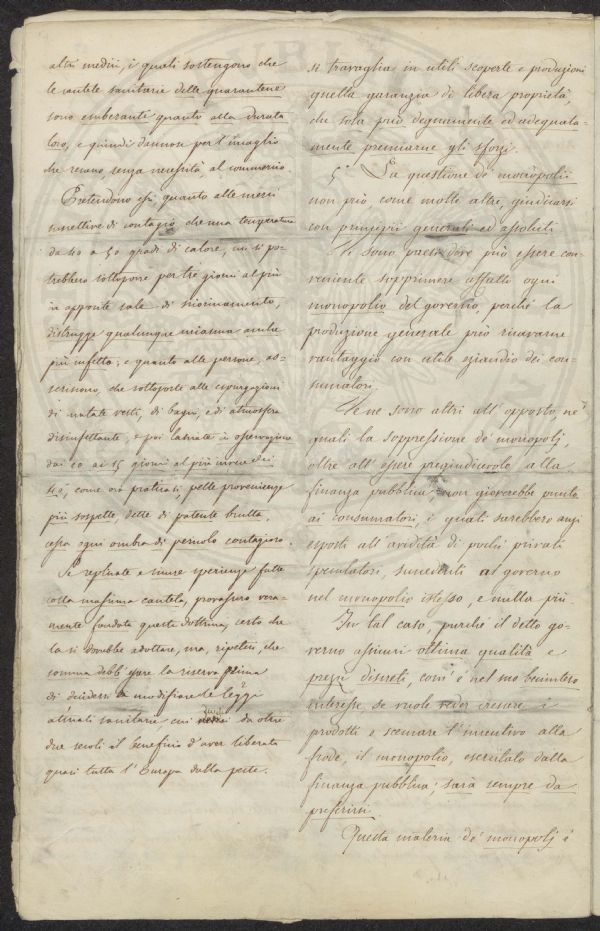 altri medici, i quali sostengono che
le cautele sanitarie delle quarantene
sono esuberanti quanto alla durata
loro, e quindi dannose per l'incaglio
che recano, senza necessità, al commercio.
Pretendono essi, quanto alle merci
suscettive di contagio, che una temperatura
da 40 a 50 gradi di calore, cui si po-
trebbero sottoporre per tre giorni al più
in apposite sale di
distrugge qualunque miasma anche
più infetto; e quanto alle persone, as-
seriscono, che sottoposte alle espurgazioni
di mutate vesti, di bagni, e di atmosfera
disinfettante, e poi lasciate in osservazione
dai 10 ai 15 giorni al più invece dei
40, come ora praticasi, nelle provenienze
più sospette, dette di patente brutta,
cessa ogni ombra di pericolo contagioso.
Se replicate e sicure sperienze fatte
colla massima cautela, provassero vera-
mente fondata questa dottrina, certo che
la si dovrebbe adottare, ma, ripetesi, che
somma debb'essere la riserva prima
di decidersi a modificare le leggi
attuali sanitarie cui da oltre
due secoli il beneficio d'aver liberata
quasi tutta l'Europa dalla peste.
si travaglia in utili scoperte e produzioni
quella garanzia di libera proprietà,
che sola può degnamente ed adeguata-
mente premiarne gli sforzi.
5° La questione de' monopolii
non può, come molte altre, giudicarsi
con principii generali ed assoluti.
Vi sono paesi dove può essere con-
veniente sopprimere affatto ogni
monopolio del governo, perché la
produzione generale può ricavarne
vantaggio con utile eziandio dei con-
sumatori.
Ve ne sono altri all'opposto, ne'
quali la soppressione de' monopolj,
oltre all'essere pregiudicevole alla
finanza pubblica, non gioverebbe punto
ai consumatori, i quali sarebbero anzi
esposti all'avidità di pochi privati
speculatori, succeduti al governo
nel monopolio istesso, e nulla più.
In tal caso, purché il detto go-
verno assicuri ottima qualità e
prezzi discreti, com'è nel suo beninteso
interesse se vuole veder crescere i
prodotti e scemare l'incentivo alla
frode, il monopolio, esercitato dalla
finanza pubblica, sarà sempre da
preferirsi.
Questa materia de' monopolj è